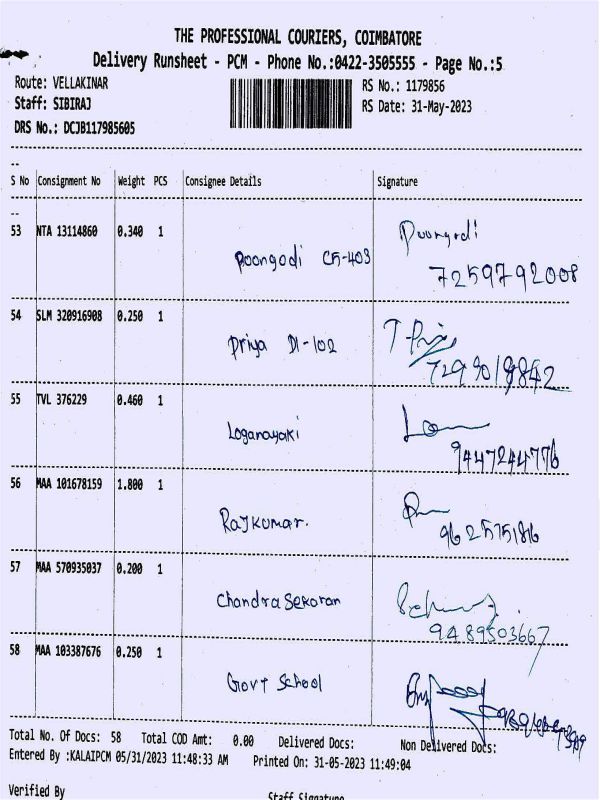 THE PROFESSIONAL COURIERS, COIMBATORE
Delivery Runsheet - PCM - Phone No.:0422-3505555 - Page No.:5
Route: VELLAKINAR
RS No.: 1179856
Staff: SIBIRAJ
RS Date: 31-May-2023
DRS No.: DCJB117985605
S No Consignment No Weight PCS Consignee Details Signature
53 NTA 13114860 0.340 1 Poongodi
Poongodi 7259792008
54 SLM 320916908 0.250 1
Priya D1-102
55 TVL 376229 0.460 1
Loganayaki 9447244776
56 MAA 101678159 1.800 1
Rajkumar.
57 MAA 570935037 0.200 1
Chandrasekaran 9489503667
58 MAA 103387676 0.250 1
Govt School
Total No. Of Docs: 58 Total COD Amt: 0.00 Delivered Docs: Non Delivered Docs:
Entered By :KALAIPCM 05/31/2023 11:48:33 AM Printed On: 31-05-2023 11:49:04
Verified By Staff Signature